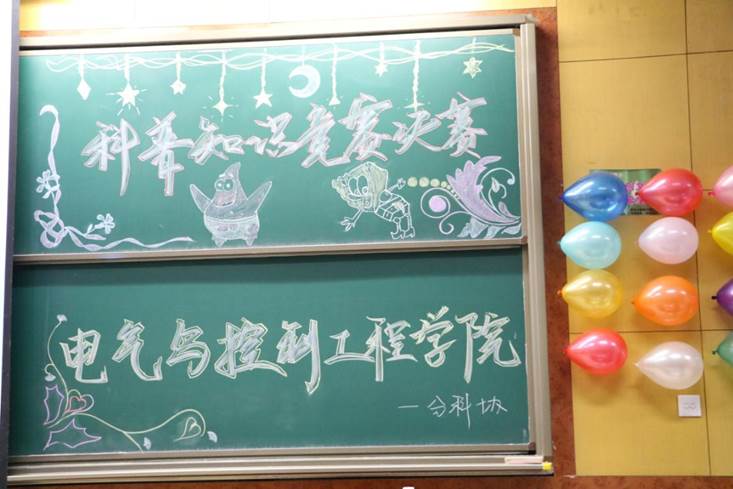 科普知识竞赛决赛
电气与控制工程学院
一分科协